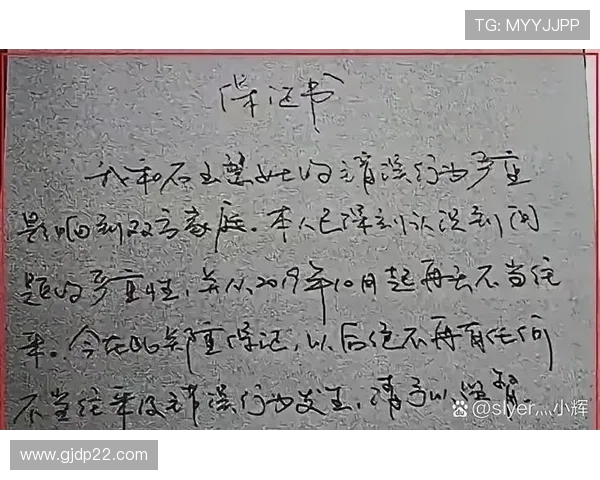 TG: MYYJJPP
保证书
我和石玉慧女士的错误行为严重
影响到双方家庭。本人已深刻认识到问
题的严重性，并从2019年10月起再无不当往
来。今在此郑重保证，以后绝不再有任何
不当往来及错误行为发生，请予以监督。
@slyer灬小辉
www.gjdp22.com